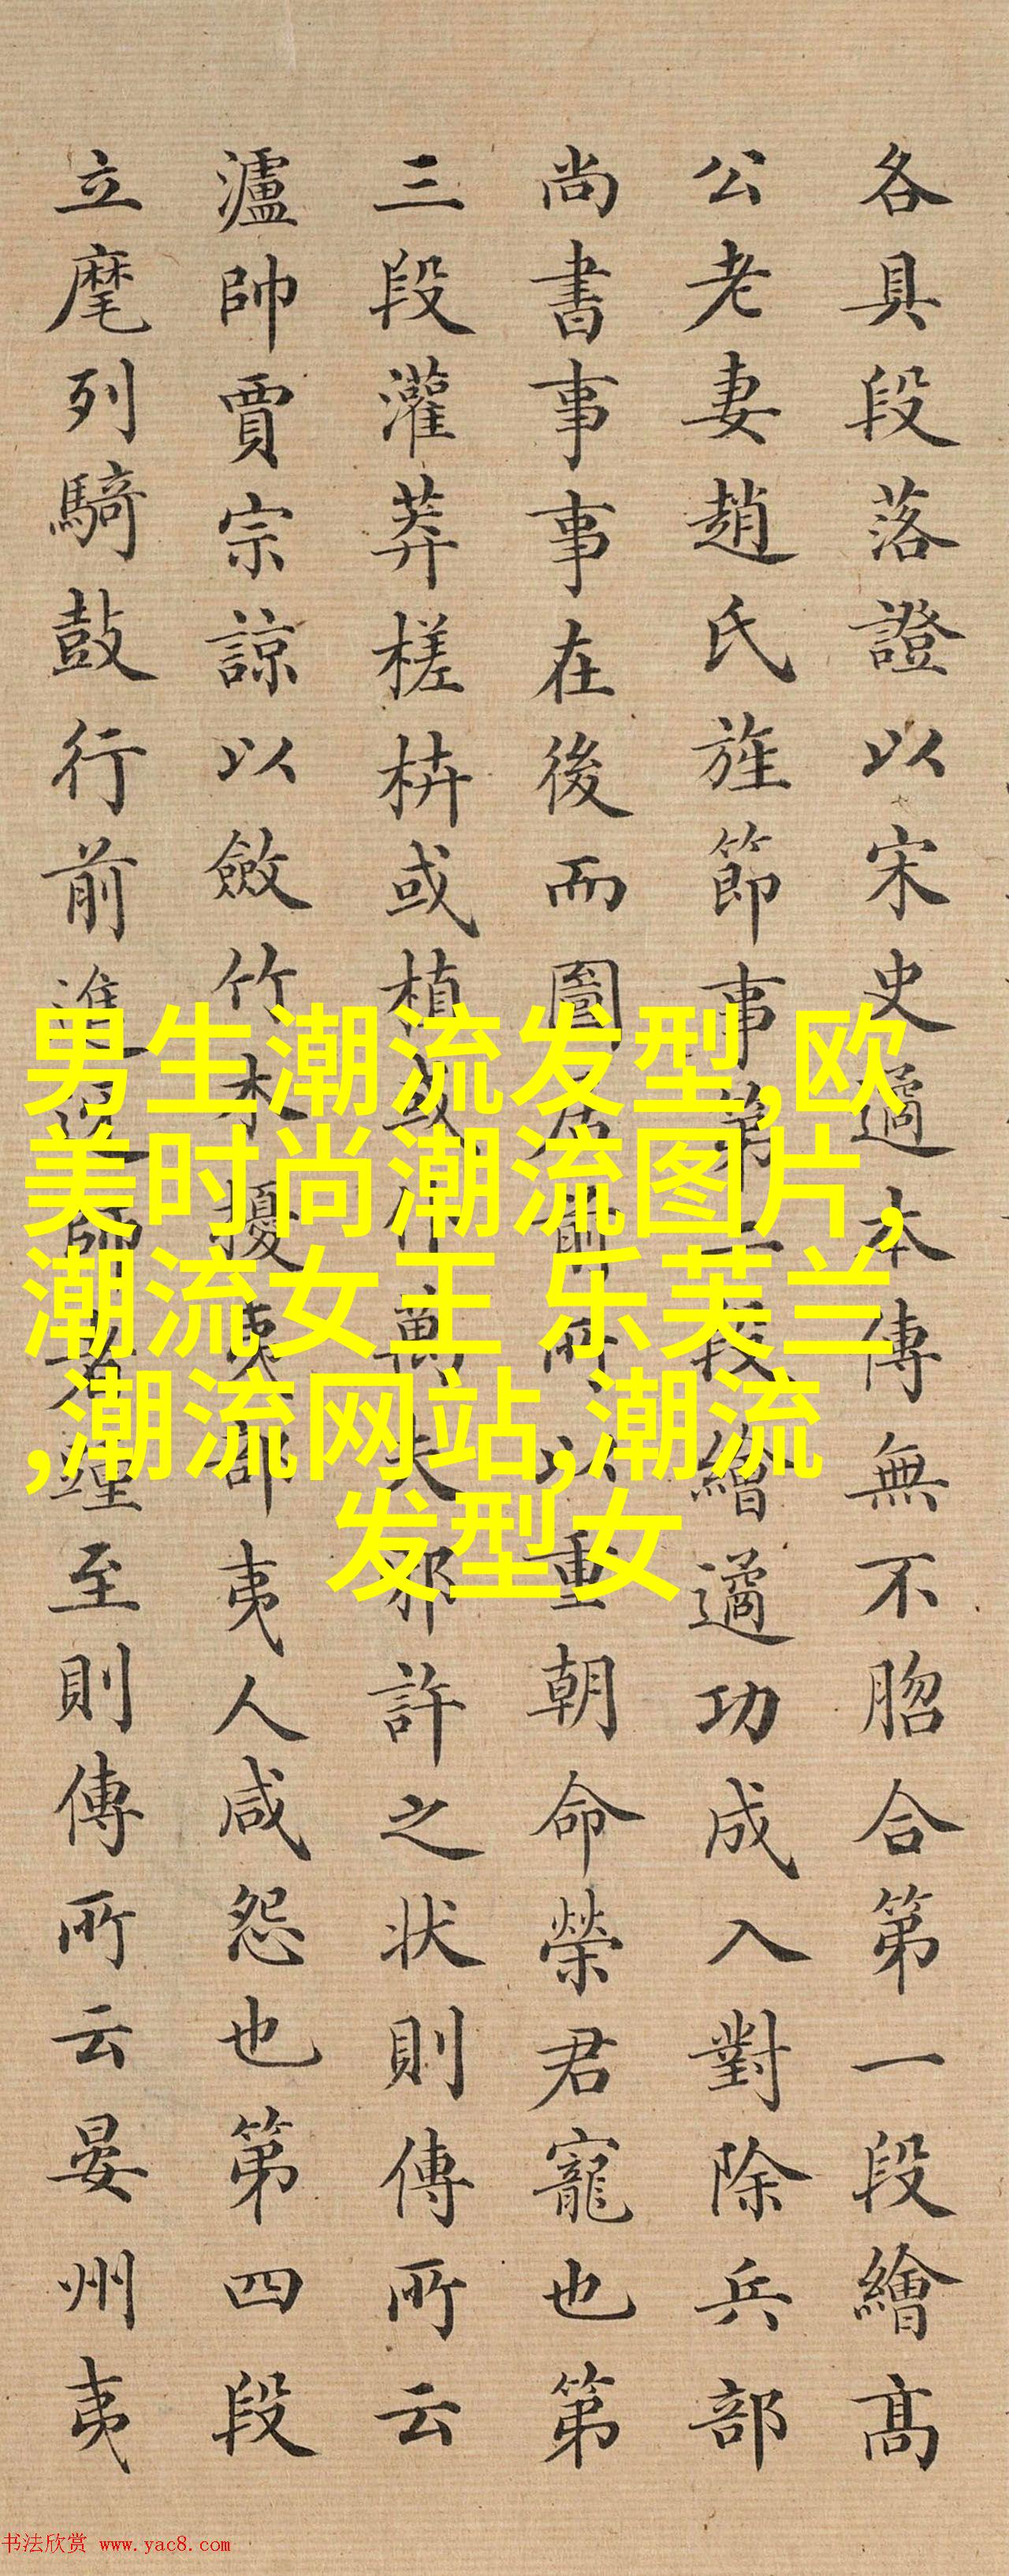 各具段落證以宋史遹本傳無不脗合第一段繪髙
公老妻趙氏旌節事第二段繪遹功成入對除兵部
尚書事事在後而圖居前所以重朝命榮君寵也第
三段灌莽槎枿或植或仆萬夫邪許之状則傳所云
瀘帥賈宗諒以斂竹木擾夷部夷人咸怨也第四段
立麾列騎鼓行前進師踵至則傳所云晏州夷
男生潮流发型,欧
美时尚潮流图片,
潮流女王 乐芙兰
,潮流网站,潮流
发型女
书法欣赏 www.yac8.com